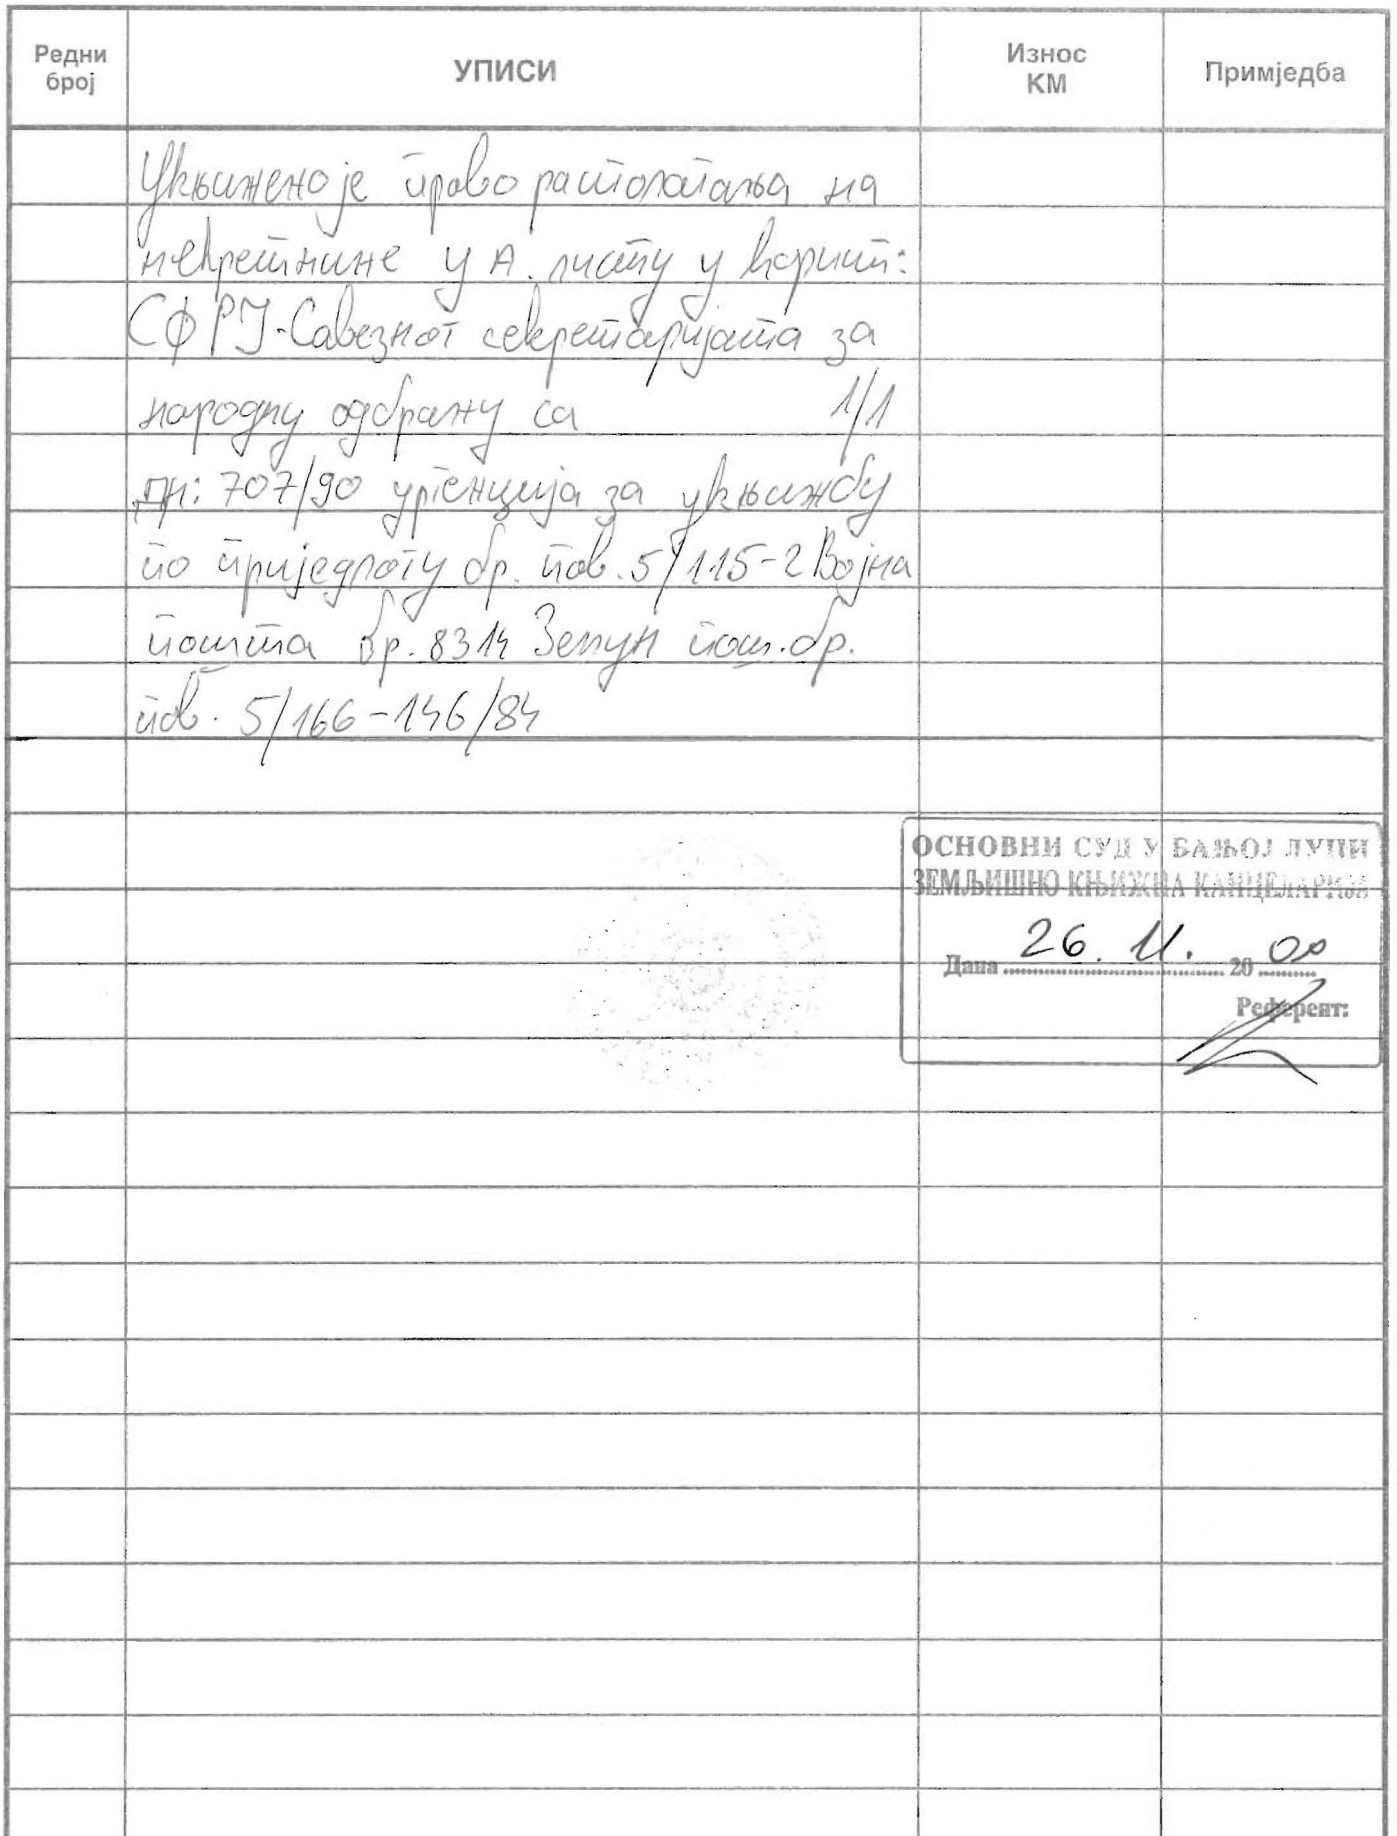 Редни број
УПИСИ
Износ КМ
Примједба
Укњижено је право располагања на
некретнине у А. листу у корист:
СФРЈ-Савезног секретаријата за
народну одбрану са 1/1
дн: 707/90 ургенција за укњижбу
по приједлогу бр. пов. 5/115-2 Војна
пошта бр. 8314 Земун пош. бр.
пов. 5/166-146/84
ОСНОВНИ СУД У БАЊОЈ ЛУЦИ
ЗЕМЉИШНО КЊИЖНА КАНЦЕЛАРИЈА
Дана 26. 11. 20 00
Референт: